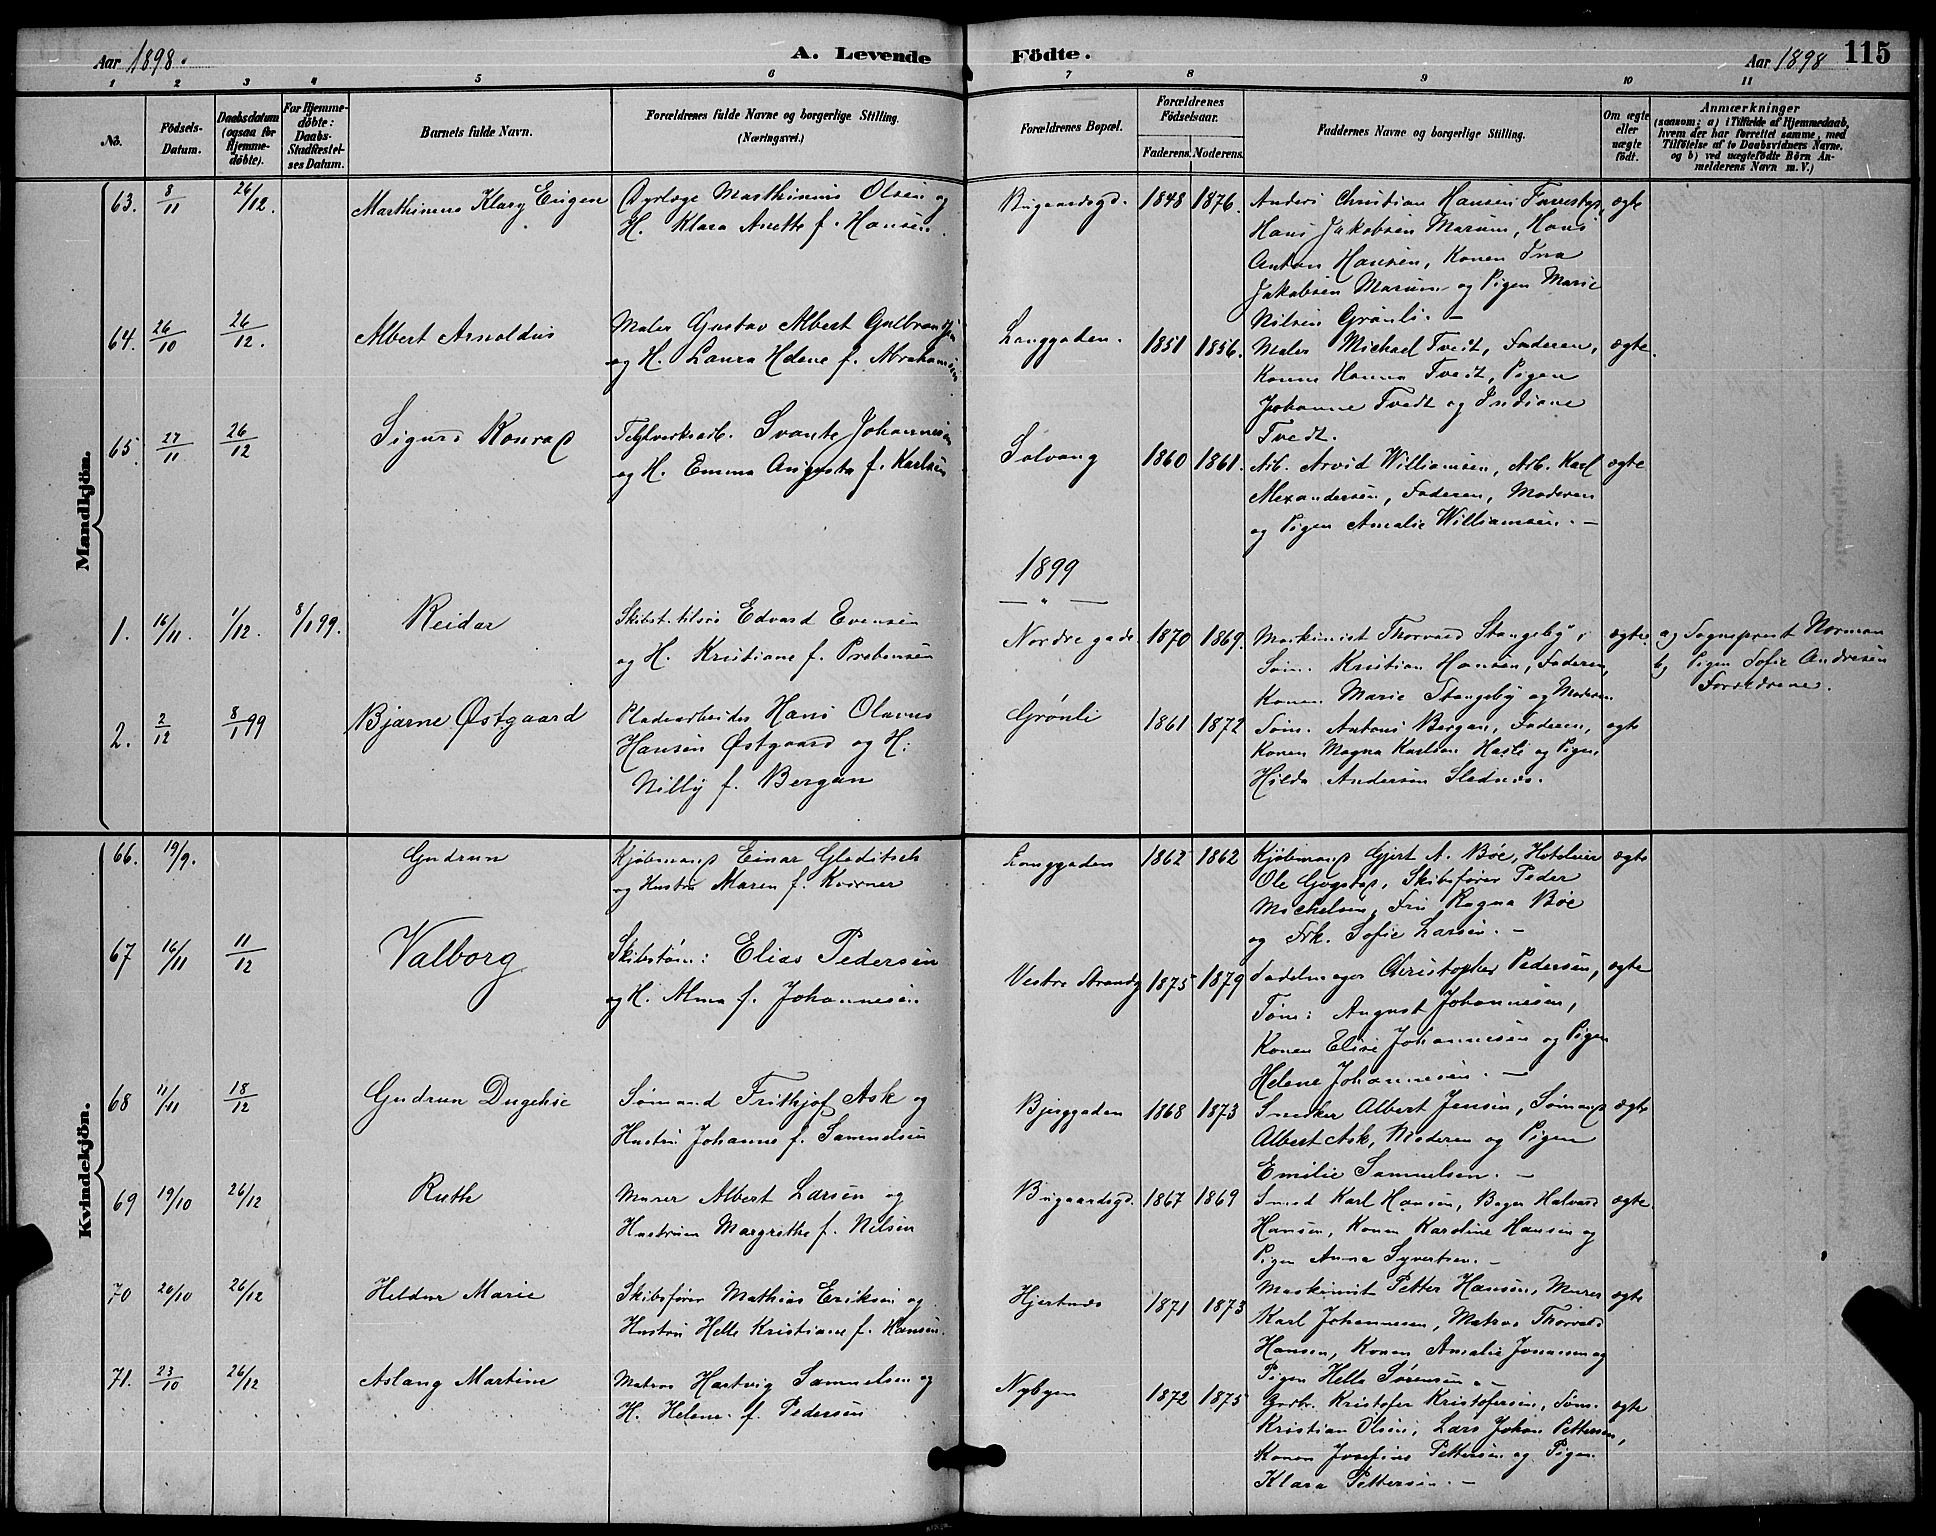 Aar 1898. A. Levende Födte. Aar 1898 115
1 2 3 4 5 6 7 8 9 10 11
No.
Födsels-Datum.
Daabsdatum (ogsaa for Hjemme-döbte).
For Hjemme-döbte: Daabs-Stadfæstel-ses Datum.
Barnets fulde Navn.
Forældrenes fulde Navne og borgerlige Stilling. (Næringsvei.)
Forældrenes Bopæl.
Forældrenes Födselsaar.
Faderens. Moderens.
Faddernes Navne og borgerlige Stilling.
Om ægte eller uægte födt.
Anmærkninger
(saasom; a) i Tilfælde af Hjemmedaab, hvem der har forrettet samme, med Tilföielse af to Daabsvidners Navne, og b) ved uægtefödte Börn An-melderens Navn m. V.)
Mandkjön.
63. 8/11 26/12. Marthinius Klary Eugen
Dyrlæge Marthinius Olsen og
H. Klara Anette f. Hansen.
Bugaardsgd. 1848 1876.
Anders Christian Hansen
Hans Jakobsen Marum, Hans
Anton Hansen, Konen Ina
Jakobsen Marum og Pigen Marie
Nilsen Grønli. —
ægte
64. 26/10 26/12. Albert Arnoldus
Maler Gustav Albert Gulbrandsen
og H. Laura Helene f. Abrahamsen
Langgaden. 1851 1856.
Maler Michael Tvedt, Faderen,
Konen Hanna Tvedt, Pigen
Johanne Tvedt og Indiane
Tvedt.
ægte.
65. 27/11 26/12 Sigurd Konrad
Svante Johannesen
og H. Emma Augusta f. Karlsen
Solvang 1860 1861.
Arb. Arvid Williamsen, Arb. Karl
Alexandersen, Faderen, Moderen
og Pigen Amalie Williamsen. —
ægte
1899
— " —
1. 16/11. 1/12. 8/1 99. Reidar
Skibst. tilsrs Edvard Evensen
og H. Kristiane f. Prebensen
Nordre gade. 1870 1869.
Maskinist Thorvald Stangeby,
Søm. Kristian Hansen, Faderen,
Konen Marie Stangeby og Moderen.
ægte.
a) Sogneprest Norman
b) Pigen Sofie Andresen
Forældrene.
2. 2/12 8/1 99 Bjarne Østgaard
Pladearbeider Hans Olavus
Hansen Østgaard og H:
Nilly f. Bergan
Grønli 1861 1872
Søm. Antons Bergan, Faderen,
Konen Magna Karlson Hasle og Pigen
Hilda Andersen Slednæs.
ægte
Kvindekjön.
66. 19/9. Gudrun
Kjøbmand Einar Gleditsch
og Hustru Maren f. Kverner
Langgaden 1862 1862
Kjøbmand Gjert A. Bøe, Hoteleier
Ole Gogstad, Skibsfører Peder
Michelsen, Fru Ragna Bøe
og Frk. Sofie Larsen. —
ægte
67 16/11 11/12 Valborg
Skibstøm: Elias Pedersen
og H. Alma f. Johannesen
Vestre Strandg 1875 1879
Sadelmager Christopher Pedersen,
Tøm: August Johannesen,
Konen Elise Johannesen og Pigen
Helene Johannesen. —
ægte
68 11/11 18/12 Gudrun Dugehse
Sømand Frithjof Ask og
Hustru Johanne f. Samuelsen
Bjerggaden 1868 1873
Snedker Albert Jensen, Sømand
Albert Ask, Moderen og Pigen
Emilie Samuelsen. —
ægte
69 19/10 26/12 Ruth
Murer Albert Larsen og
Hustruen Margrethe f. Nilsen
Bugaardsgd. 1867 1869
Smed Karl Hansen, Bager Halvard
Hansen, Konen Karoline Hansen og
Pigen Anna Syvertsen. —
ægte.
70 20/10 26/12 Heldur Marie
Skibsfører Mathias Eriksen og
Hustru Helle Kristiane f. Hansen.
Hjertnæs 1871 1873
Maskinist Petter Hansen, Murer
Karl Johannesen, Matros Thorvald
Hansen, Konen Amalie Jonassen og
Pigen Helle Sørensen. —
ægte
71. 23/10 26/12 Aslaug Martine
Matros Hartvig Samuelsen og
H. Helene f. Pedersen
Nybyen 1872 1875
Gaardbr. Kristofer Kristofersen, Søm.
Kristian Olsen, Lars Johan Pettersen,
Konen Josefine Pettersen og Pigen
Klara Pettersen. —
ægte